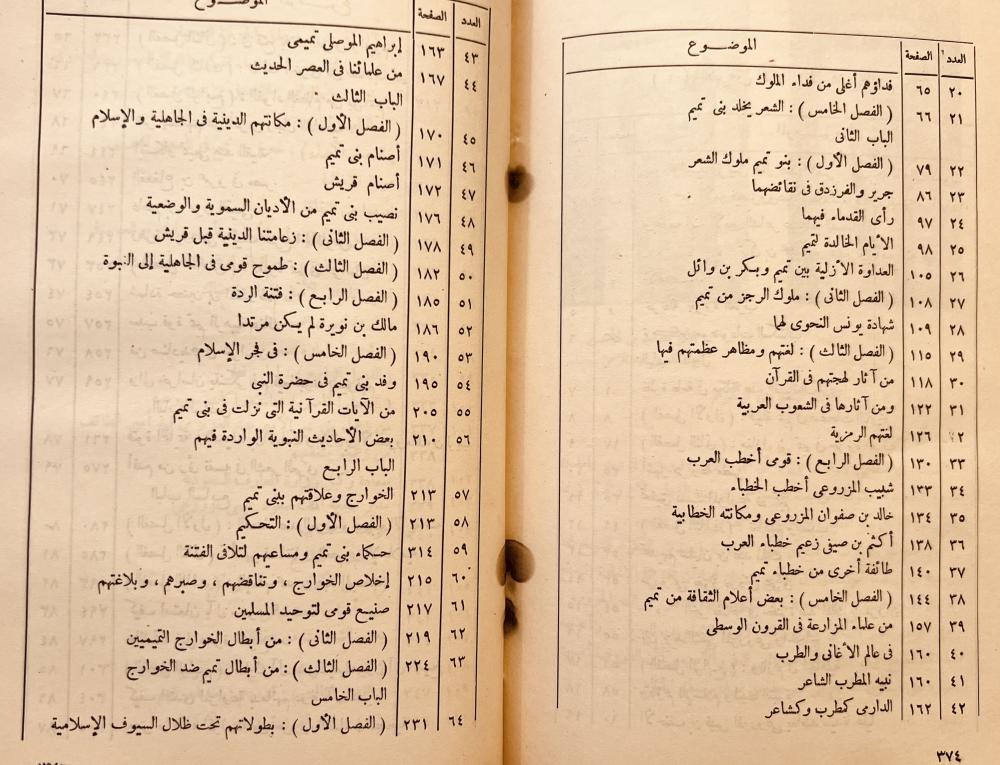 العدد الصفحة الموضـــوع
٢٠ ٦٥ فداؤهم أغلى من فداء الملوك
٢١ ٦٦ ( الفصل الخامس ) : الشعر يخلد بنى تميم
الباب الثانى
٢٢ ٧٩ ( الفصل الأول ) : بنو تميم ملوك الشعر
٢٣ ٨٦ جرير والفرزدق فى نقائضهما
٢٤ ٩٧ رأى القدماء فيهما
٢٥ ٩٨ الأيام الخالدة لتميم
٢٦ ١٠٥ العداوة الأزلية بين تميم وبكر بن وائل
٢٧ ١٠٨ ( الفصل الثانى ) : ملوك الرجز من تميم
٢٨ ١٠٩ شهادة يونس النحوى لهما
٢٩ ١١٥ ( الفصل الثالث ) : لغتهم ومظاهر عظمتهم فيها
٣٠ ١١٨ من آثار لهجتهم فى القرآن
٣١ ١٢٢ ومن آثارها فى الشعوب العربية
٢ ١٢٦ لغتهم الرمزية
٣٣ ١٣٠ ( الفصل الرابع ) : قومى أخطب العرب
٣٤ ١٣٣ شبيب المزروعى أخطب الخطباء
٣٥ ١٣٤ خالد بن صفوان المزروعى ومكانته الخطابية
٣٦ ١٣٨ أكثم بن صيفى زعيم خطباء العرب
٣٧ ١٤٠ طائفة أخرى من خطباء تميم
٣٨ ١٤٤ ( الفصل الخامس ) : بعض أعلام الثقافة من تميم
٣٩ ١٥٧ من علماء المزارعة فى القرون الوسطى
٤٠ ١٦٠ فى عالم الأغانى والطرب
٤١ ١٦٠ نبيه المطرب الشاعر
٤٢ ١٦٢ الدارمى كمطرب وكشاعر
٣٧٤
العدد الصفحة الموضـــوع
٤٣ ١٦٣ إبراهيم الموصلى تميمى
٤٤ ١٦٧ من علمائنا فى العصر الحديث
الباب الثالث
٤٥ ١٧٠ ( الفصل الأول ) : مكانتهم الدينية فى الجاهلية والإسلام
٤٦ ١٧١ أصنام بنى تميم
٤٧ ١٧٢ أصنام قريش
٤٨ ١٧٦ نصيب بنى تميم من الأديان السموية والوضعية
٤٩ ١٧٨ ( الفصل الثانى ) : زعامتنا الدينية قبل قريش
٥٠ ١٨٢ ( الفصل الثالث ) : طموح قومى فى الجاهلية إلى النبوة
٥١ ١٨٥ ( الفصل الرابع ) : فتنة الردة
٥٢ ١٨٦ مالك بن نويرة لم يكن مرتدا
٥٣ ١٩٠ ( الفصل الخامس ) : فى فجر الإسلام
٥٤ ١٩٥ وفد بنى تميم فى حضرة النبى
٥٥ ٢٠٥ من الآيات القرآنية التى نزلت فى بنى تميم
٥٦ ٢١٠ بعض الأحاديث النبوية الواردة فيهم
الباب الرابع
٥٧ ٢١٣ الخوارج وعلاقتهم ببنى تميم
٥٨ ٢١٣ ( الفصل الأول ) : التحكيم
٥٩ ٣١٤ حكماء بنى تميم ومساعيهم لتلافى الفتنة
٦٠ ٢١٥ إخلاص الخوارج ، وتناقضهم ، وصبرهم ، وبلاغتهم
٦١ ٢١٧ صنيع قومى لتوحيد المسلمين
٦٢ ٢١٩ ( الفصل الثانى ) : من أبطال الخوارج التميميين
٦٣ ٢٢٤ ( الفصل الثالث ) : من أبطال تميم ضد الخوارج
الباب الخامس
٦٤ ٢٣١ ( الفصل الأول ) : بطولاتهم تحت ظلال السيوف الإسلامية